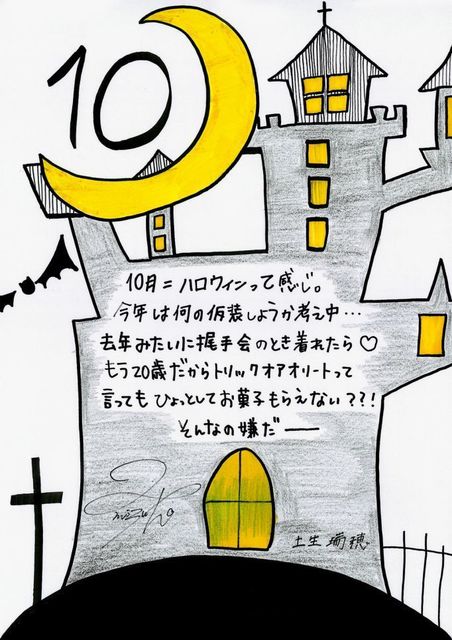 10
10月＝ハロウィンって感じ。
今年は何の仮装しようか考え中…
去年みたいに握手会のとき着れたら♡
もう20歳だからトリックオアオリートって
言ってもひょっとしてお菓子もらえない？？！
そんなの嫌だー
Mizuho
土生 瑞穂